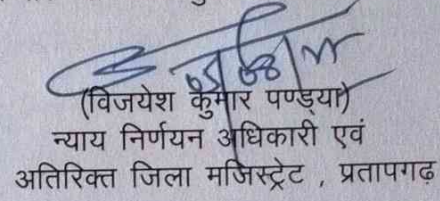 (विजयेश कुमार पण्ड्या)
न्याय निर्णयन अधिकारी एवं
अतिरिक्त जिला मजिस्ट्रेट , प्रतापगढ़